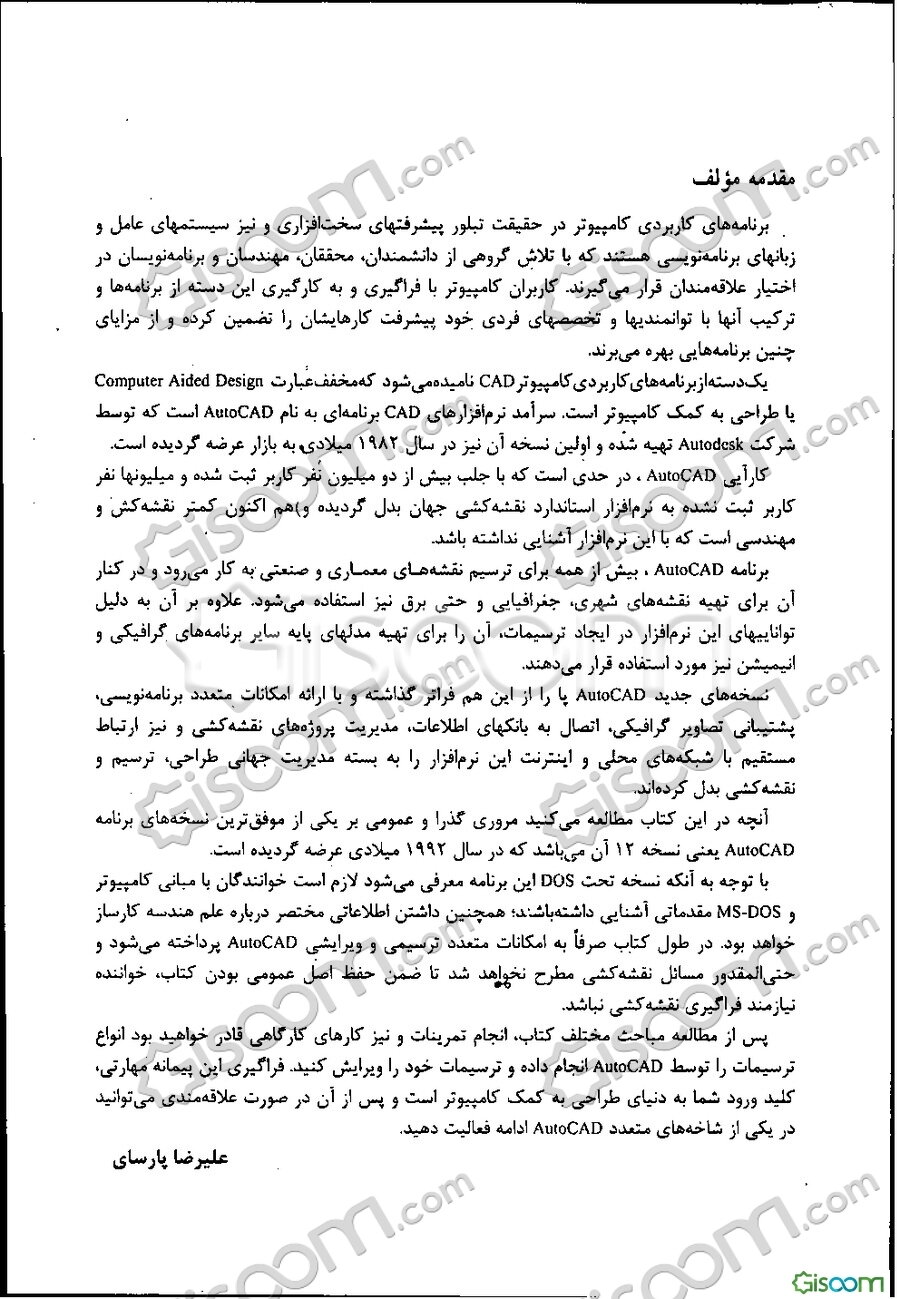 مقدمه مؤلف
برنامه‌های کاربردی کامپیوتر در حقیقت تبلور پیشرفتهای سخت‌افزاری و نیز سیستمهای عامل و
زبانهای برنامه‌نویسی هستند که با تلاش گروهی از دانشمندان، محققان، مهندسان و برنامه‌نویسان در
اختیار علاقه‌مندان قرار می‌گیرند. کاربران کامپیوتر با فراگیری و به کارگیری این دسته از برنامه‌ها و
ترکیب آنها با توانمندیها و تخصصهای فردی خود پیشرفت کارهایشان را تضمین کرده و از مزایای
چنین برنامه‌هایی بهره می‌برند.
یک‌دسته‌از‌برنامه‌های‌کاربردی‌کامپیوتر CAD نامیده‌می‌شود که‌مخفف‌عبارت Computer Aided Design
یا طراحی به کمک کامپیوتر است. سرآمد نرم‌افزارهای CAD برنامه‌ای به نام AutoCAD است که توسط
شرکت Autodesk تهیه شده و اولین نسخه آن نیز در سال ۱۹۸۲ میلادی به بازار عرضه گردیده است.
کارآیی AutoCAD ، در حدی است که با جلب بیش از دو میلیون نفر کاربر ثبت شده و میلیونها نفر
کاربر ثبت نشده به نرم‌افزار استاندارد نقشه‌کشی جهان بدل گردیده و هم اکنون کمتر نقشه‌کش و
مهندسی است که با این نرم‌افزار آشنایی نداشته باشد.
برنامه AutoCAD ، بیش از همه برای ترسیم نقشه‌های معماری و صنعتی به کار می‌رود و در کنار
آن برای تهیه نقشه‌های شهری، جغرافیایی و حتی برق نیز استفاده می‌شود. علاوه بر آن به دلیل
تواناییهای این نرم‌افزار در ایجاد ترسیمات، آن را برای تهیه مدلهای پایه سایر برنامه‌های گرافیکی و
انیمیشن نیز مورد استفاده قرار می‌دهند.
نسخه‌های جدید AutoCAD پا را از این هم فراتر گذاشته و با ارائه امکانات متعدد برنامه‌نویسی،
پشتیبانی تصاویر گرافیکی، اتصال به بانکهای اطلاعات، مدیریت پروژه‌های نقشه‌کشی و نیز ارتباط
مستقیم با شبکه‌های محلی و اینترنت این نرم‌افزار را به بسته مدیریت جهانی طراحی، ترسیم و
نقشه‌کشی بدل کرده‌اند.
آنچه در این کتاب مطالعه می‌کنید مروری گذرا و عمومی بر یکی از موفق‌ترین نسخه‌های برنامه
AutoCAD یعنی نسخه ۱۲ آن می‌باشد که در سال ۱۹۹۲ میلادی عرضه گردیده است.
با توجه به آنکه نسخه تحت DOS این برنامه معرفی می‌شود لازم است خوانندگان با مبانی کامپیوتر
و MS-DOS مقدماتی آشنایی داشته‌باشند؛ همچنین داشتن اطلاعاتی مختصر درباره علم هندسه کارساز
خواهد بود. در طول کتاب صرفاً به امکانات متعدد ترسیمی و ویرایشی AutoCAD پرداخته می‌شود و
حتی‌المقدور مسائل نقشه‌کشی مطرح نخواهد شد تا ضمن حفظ اصل عمومی بودن کتاب، خواننده
نیازمند فراگیری نقشه‌کشی نباشد.
پس از مطالعه مباحث مختلف کتاب، انجام تمرینات و نیز کارهای کارگاهی قادر خواهید بود انواع
ترسیمات را توسط AutoCAD انجام داده و ترسیمات خود را ویرایش کنید. فراگیری این پیمانه مهارتی،
کلید ورود شما به دنیای طراحی به کمک کامپیوتر است و پس از آن در صورت علاقه‌مندی می‌توانید
در یکی از شاخه‌های متعدد AutoCAD ادامه فعالیت دهید.
علیرضا پارسای
Gisoom